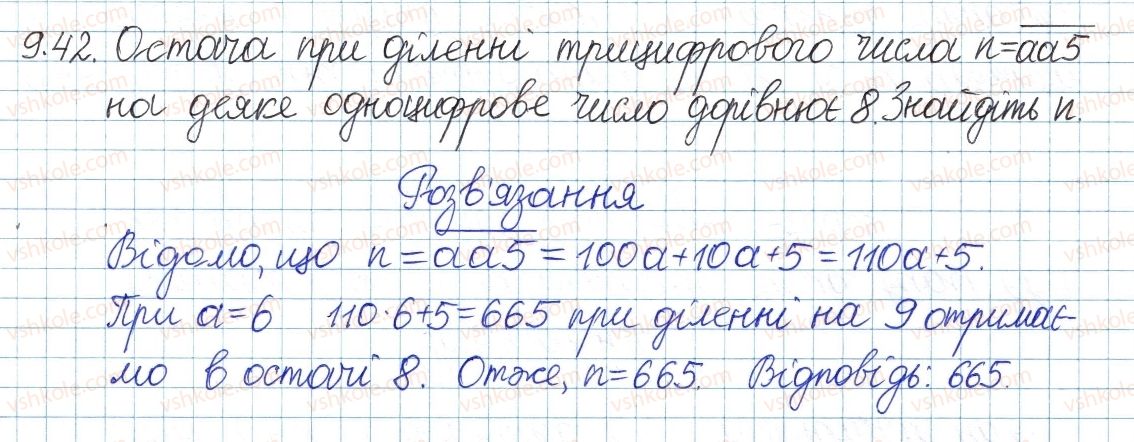 9.42. Остача при діленні трицифрового числа n=aa5
на деяке одноцифрове число дорівнює 8. Знайдіть n.
Розв'язання
Відомо, що n=aa5=100a+10a+5=110a+5.
При a=6 110·6+5=665 при діленні на 9 отримає-
мо в остачі 8. Отже, n=665. Відповідь: 665.